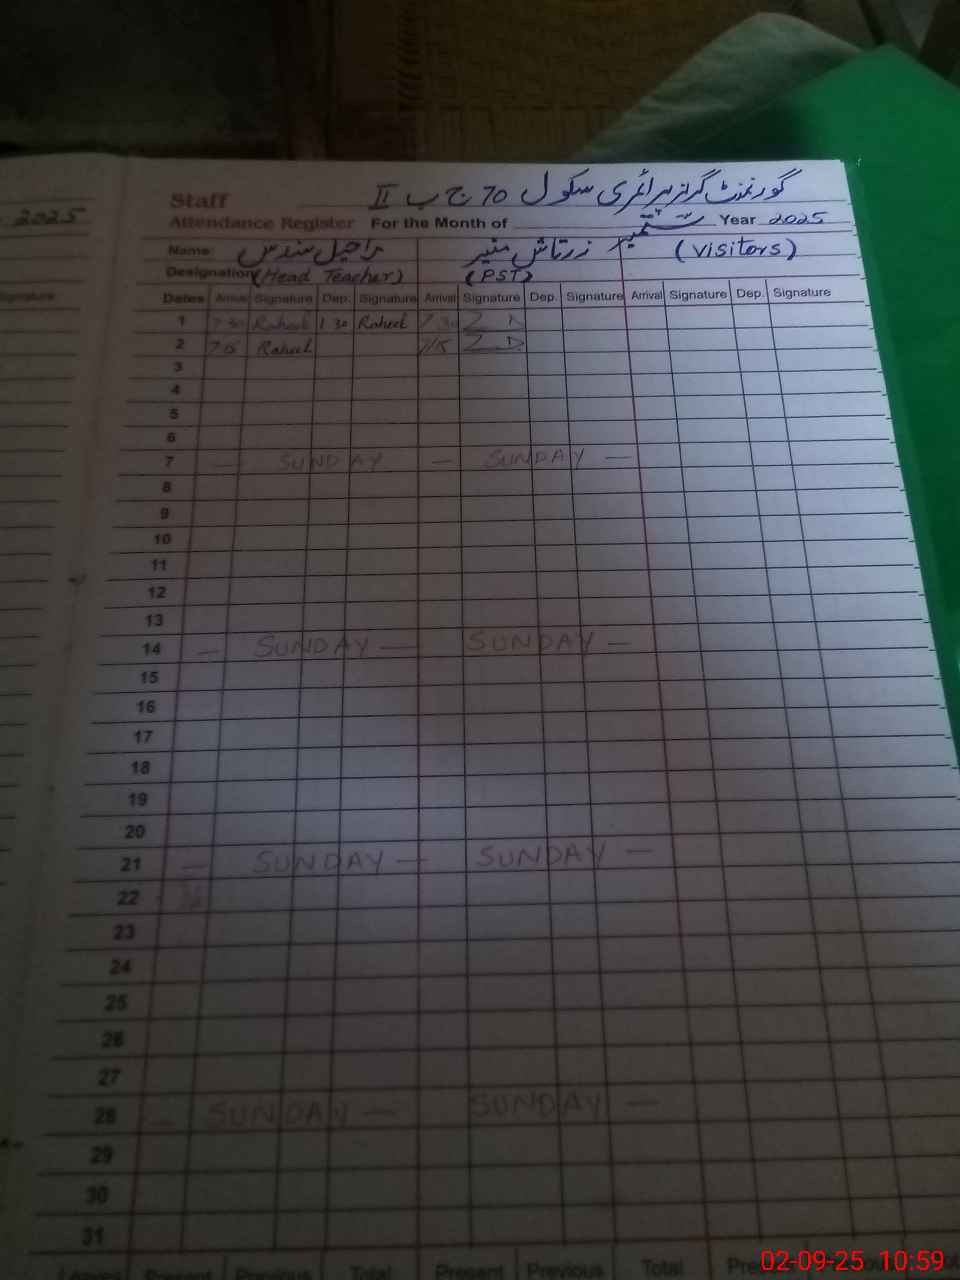 2025
Signature
Staff گورنمنٹ گرلز پرائمری سکول 70 ج ب II
Attendance Register For the Month of ستمبر Year 2025
Name: راحیل زرتاش منیر (visitors)
Designation (Head Teacher) (PST)
Dates Arrival Signature Dep. Signature Arrival Signature Dep. Signature Arrival Signature Dep. Signature
1 7 30 Raheel 1 30 Raheel 7 30
2 7 15 Raheel 7 15
3
4
5
6
7 — SUNDAY — SUNDAY —
8
9
10
11
12
13
14 — SUNDAY — SUNDAY —
15
16
17
18
19
20
21 — SUNDAY — SUNDAY —
22
23
24
25
26
27
28 — SUNDAY — SUNDAY —
29
30
31
Present Previous Total Present Previous Total
02-09-25 10:59